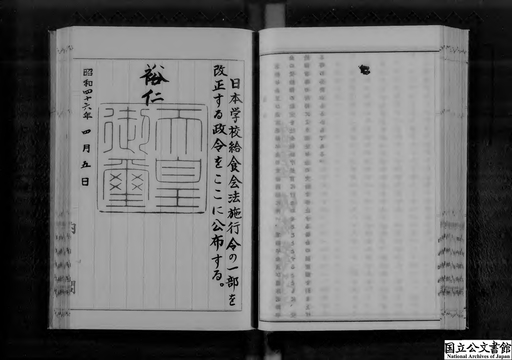 日本学校給食会法施行令の一部を
改正する政令をここに公布する。
裕仁
天皇
御璽
昭和四十六年四月五日
内閣
国立公文書館
National Archives of Japan